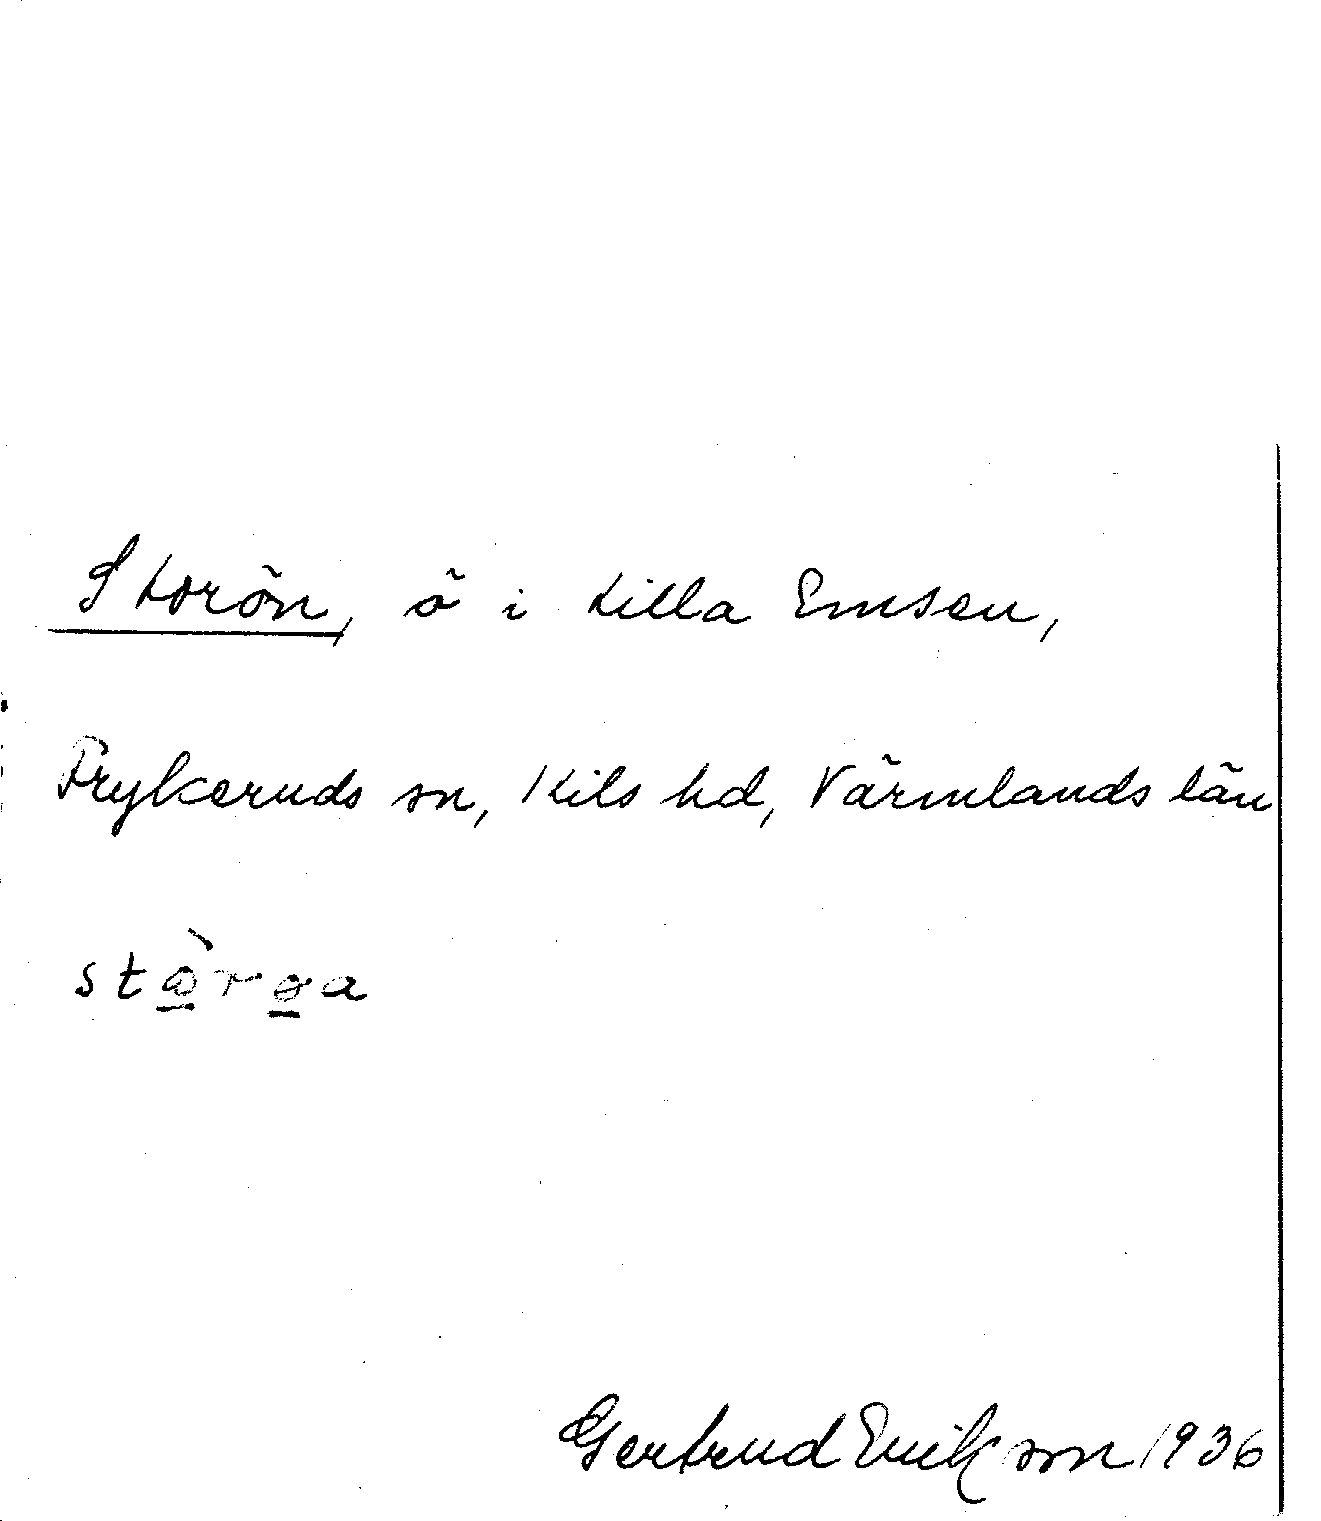 Storön, ö i Lilla Emsen,
Frykeruds sn, Kils hd, Värmlands län
Gertrud Erikson 1936